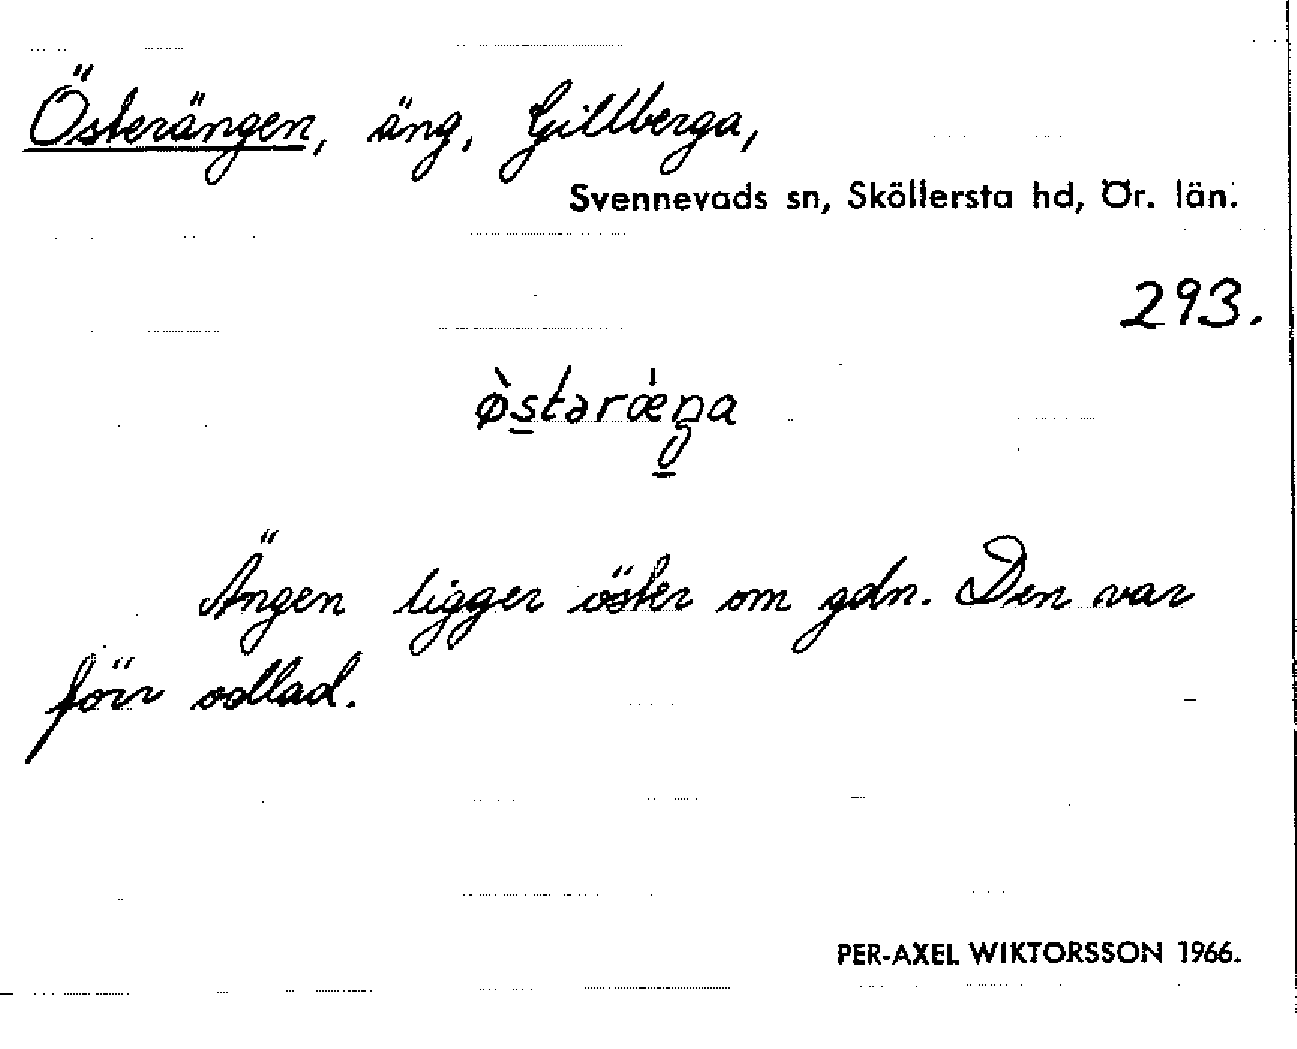 Österängen, äng, Gillberga,
Svennevads sn, Sköllersta hd, Ör. län.
293.
ø̀s̲tərǽŋ̲a
Ängen ligger öster om gdn. Den var
förr odlad.
PER-AXEL WIKTORSSON 1966.